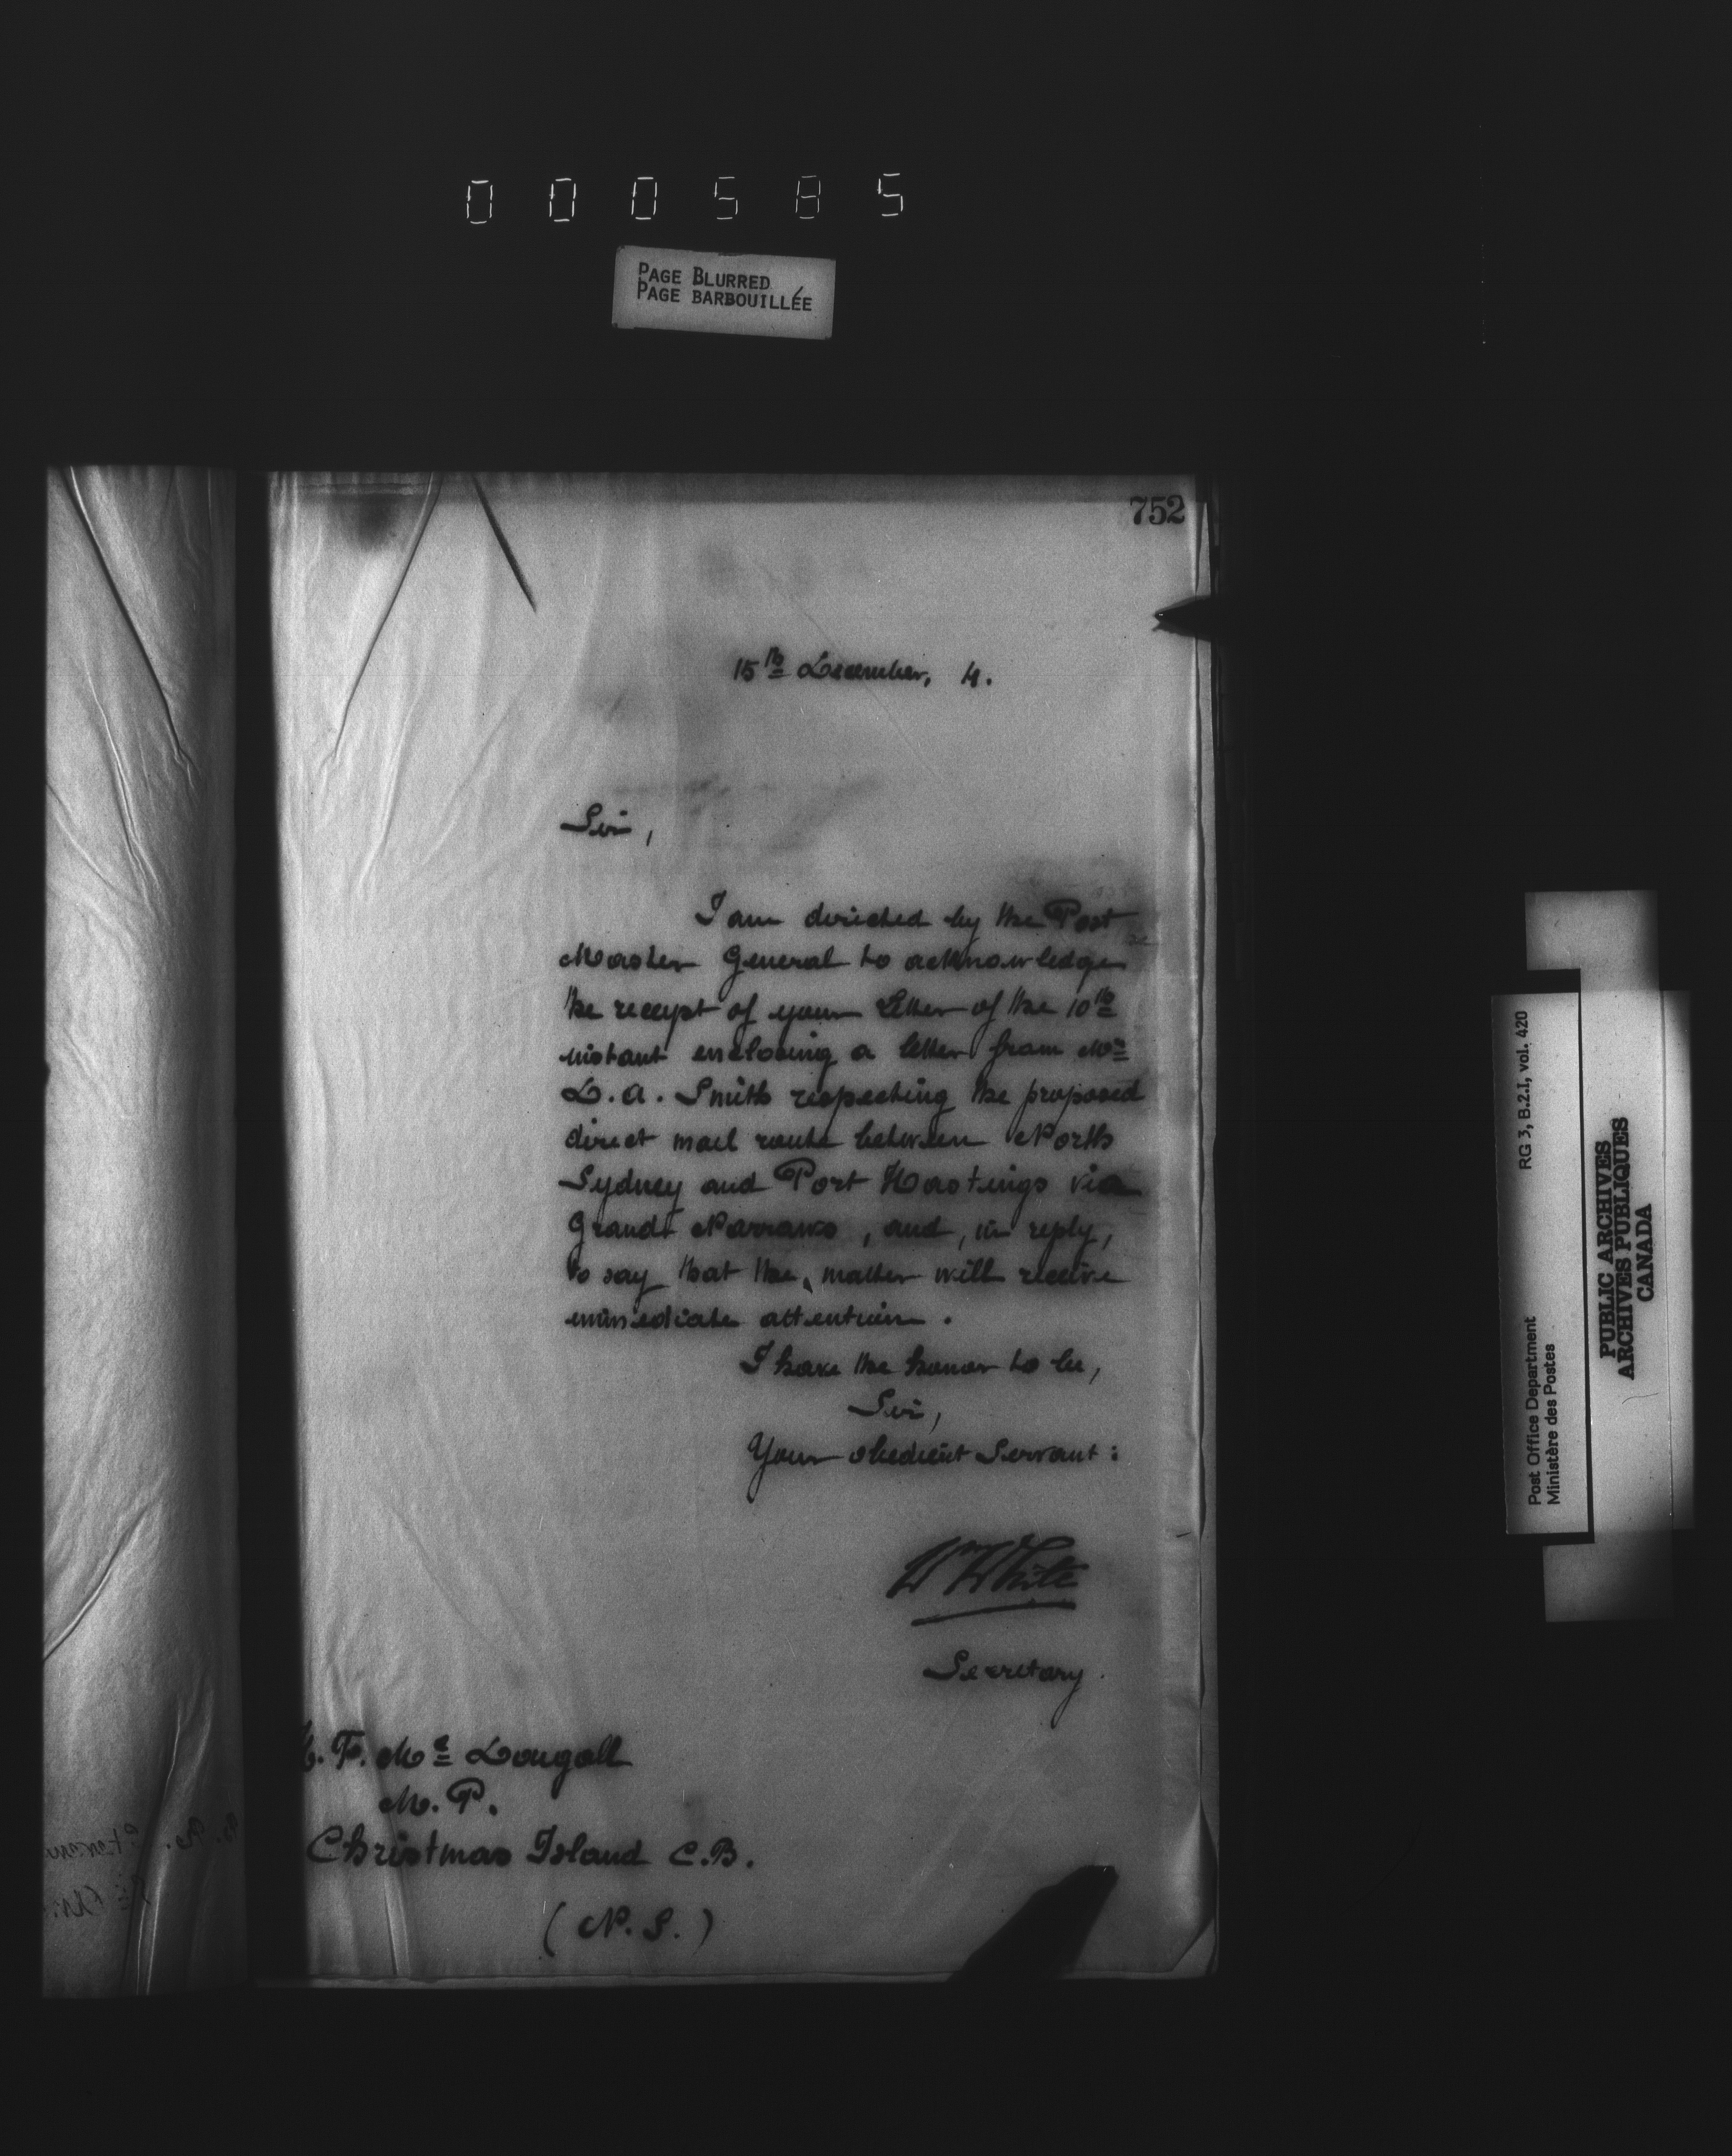 000585
PAGE BLURRED
PAGE BARBOUILLÉE
752
15th December, 4.
Sir,
I am directed by the Post
Master General to acknowledge
the receipt of your Letter of the 10th
instant enclosing a letter from Mr
D. A. Smith respecting the proposed
direct mail route between North
Sydney and Port Hastings via
Grand Narrows, and, in reply,
to say that the matter will receive
immediate attention.
I have the honor to be,
Sir,
Your obedient Servant:
Wm White
Secretary.
H. F. Mc Dougall
M. P.
Christmas Island C.B.
(N. S.)
Post Office Department RG 3, B.2.I, vol. 420
Ministère des Postes
PUBLIC ARCHIVES
ARCHIVES PUBLIQUES
CANADA